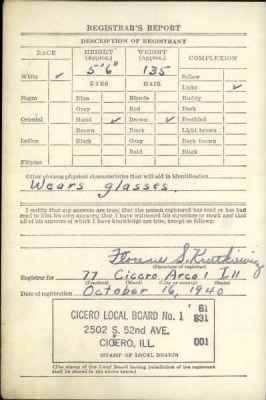 REGISTRAR'S REPORT
DESCRIPTION OF REGISTRANT
RACE HEIGHT (Approx.) WEIGHT (Approx.) COMPLEXION
5'6" 135
White ✓ EYES HAIR Sallow
Light ✓
Negro Blue Blonde Ruddy
Gray Red Dark
Oriental Hazel ✓ Brown ✓ Freckled
Brown Black Light brown
Indian Black Gray Dark brown
Bald Black
Filipino
Other obvious physical characteristics that will aid in identification
Wears glasses.
I certify that my answers are true; that the person registered has read or has had
read to him his own answers; that I have witnessed his signature or mark and that
all of his answers of which I have knowledge are true, except
Florence S.
(Signature of registrar)
Registrar for 77 Cicero Area 1 Ill
(Precinct) (Ward) (City or county) (State)
Date of registration October 16, 1940
CICERO LOCAL BOARD No. 1 61
031
2502 S. 52nd AVE.
CICERO, ILL 001
(STAMP OF LOCAL BOARD)
(The stamp of the Local Board having jurisdiction of the registrant
shall be placed in the above space.)